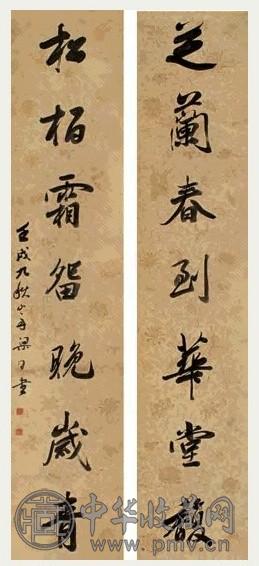 芝蘭春到華堂馥
松柏霜留晚歲青
壬戌九秋山舟梁同書
中华收藏网
www.pmv.cn